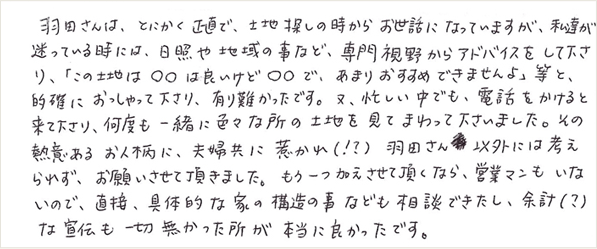 羽田さんは、とにかく正直で、土地探しの時からお世話になっていますが、私達が
迷っている時には、日照や地域の事など、専門視野からアドバイスをして下さ
り、「この土地は〇〇は良いけど〇〇で、あまりおすすめできませんよ」等と、
的確におっしゃって下さり、有り難かったです。又、忙しい中でも、電話をかけると
来て下さり、何度も一緒に色々な所の土地を見てまわって下さいました。その
熱意あるお人柄に、夫婦共に惹かれ(!?)羽田さん以外には考え
られず、お願いさせて頂きました。もう一つ加えさせて頂くなら、営業マンもいな
いので、直接、具体的な家の構造の事なども相談できたし、余計(?)
な宣伝も一切無かった所が本当に良かったです。